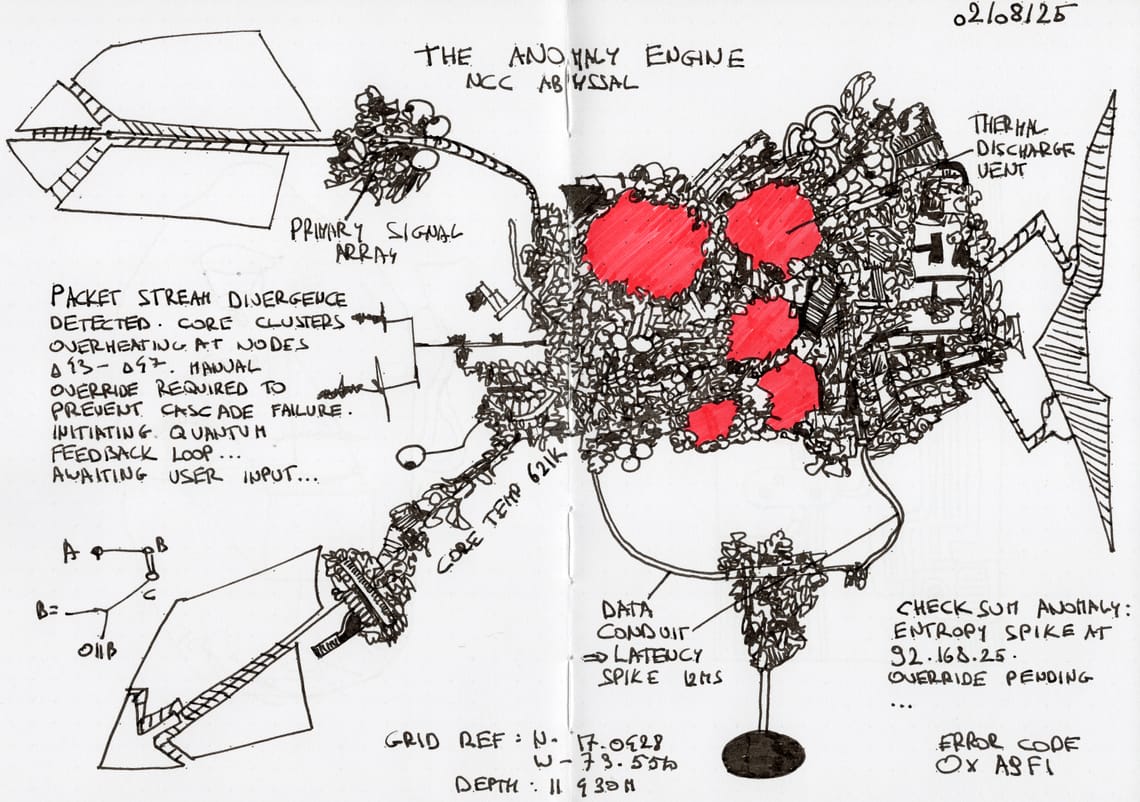 02/08/25
THE ANOMALY ENGINE
NCC ABYSSAL
THERMAL
DISCHARGE
VENT
PRIMARY SIGNAL
ARRAY
PACKET STREAM DIVERGENCE
DETECTED. CORE CLUSTERS
OVERHEATING AT NODES
Δ93-Δ97. MANUAL
OVERRIDE REQUIRED TO
PREVENT CASCADE FAILURE.
INITIATING QUANTUM
FEEDBACK LOOP...
AWAITING USER INPUT...
CORE TEMP 621K
A
B
C
B=
O11B
DATA
CONDUIT
⇒ LATENCY
SPIKE 12MS
CHECKSUM ANOMALY:
ENTROPY SPIKE AT
92.168.25.
OVERRIDE PENDING
...
GRID REF: N- 17.0928
W-73.556
DEPTH: 11 930M
ERROR CODE
0x A9F1